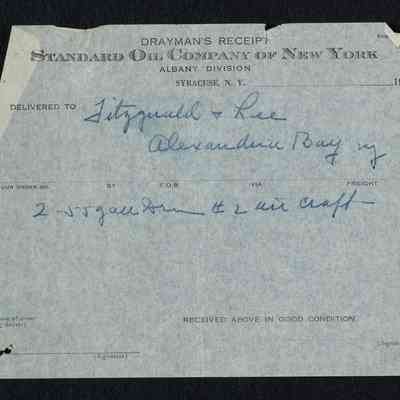 DRAYMAN'S RECEIPT
STANDARD OIL COMPANY OF NEW YORK
ALBANY DIVISION
SYRACUSE, N. Y. 19
DELIVERED TO Fitzgerald & Lee
Alexandria Bay ny
OUR ORDER NO. BY F.O.B. VIA FREIGHT
2-55 gall Drum # 2 air craft
RECEIVED ABOVE IN GOOD CONDITION.
(Signature)